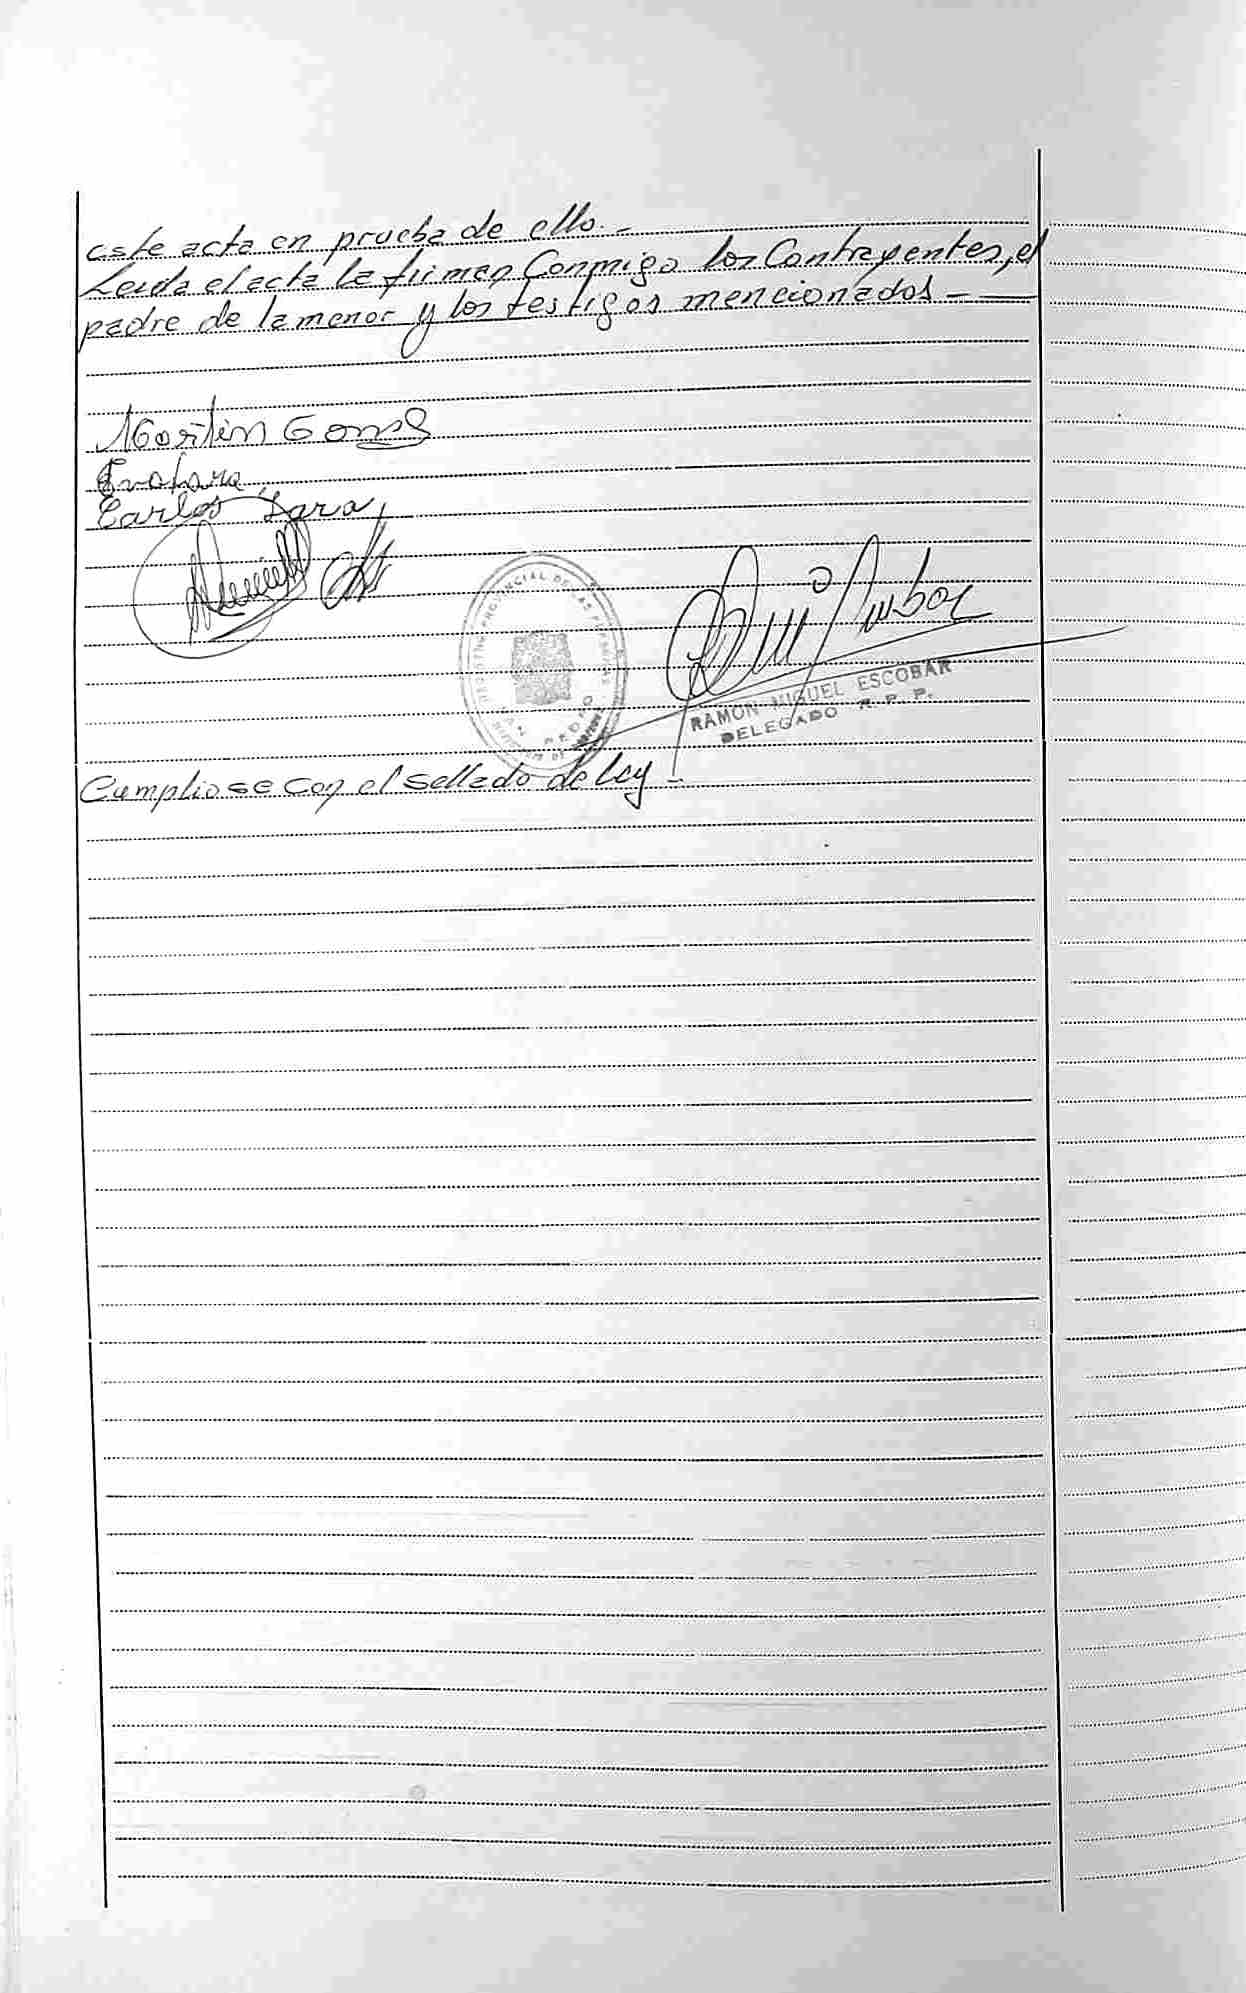 este acta en prueba de ello. -
Leida el acta la firman Conmigo los Contrayentes, el
padre de la menor y los testigos mencionados -
Martin Gomes
Carlos Lara
REGISTRO PROVINCIAL DE LAS PERSONAS
SAN PEDRO
RAMON MIGUEL ESCOBAR
DELEGADO R. P. P.
Cumpliose con el sellado de ley -